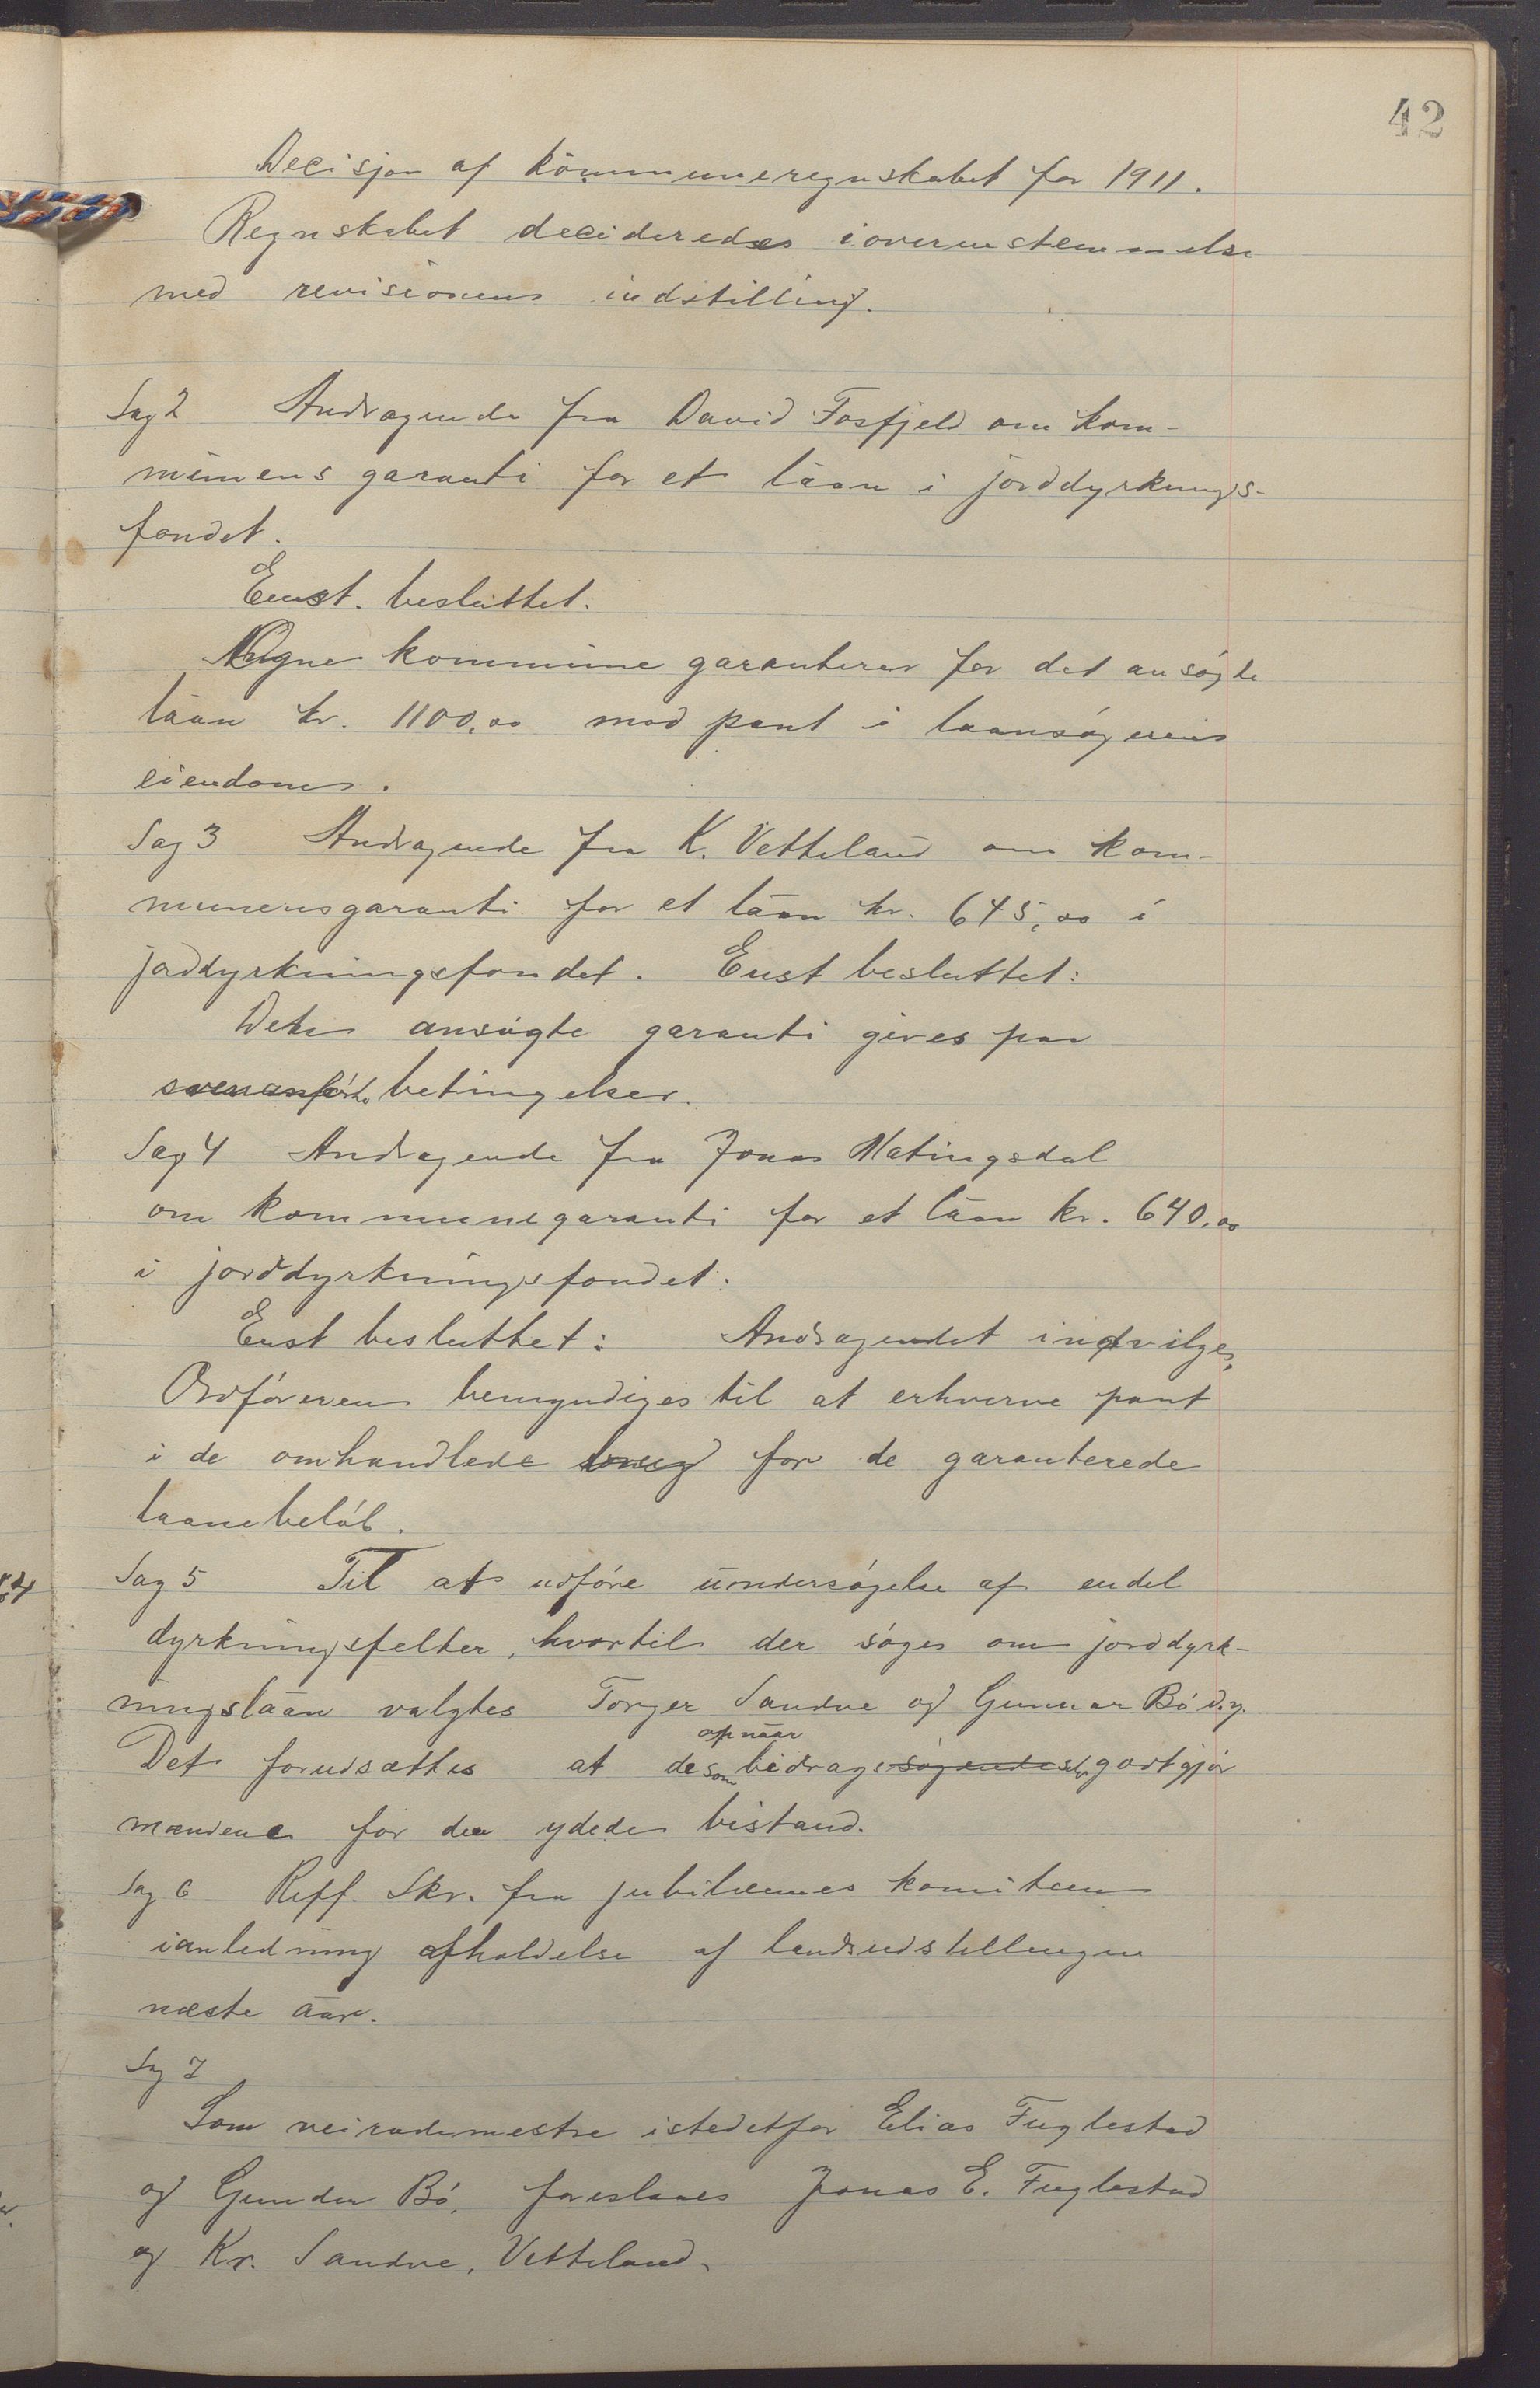 42
Decisjon af kommuneregnskabet for 1911.
Regnskabet decideredes i overenstemmelse
med revisionens indstilling.
Sag 2 Andragende fra David Fosfjeld om kom-
munens garanti for et laan i jorddyrknings-
fondet.
Enst. besluttet.
Ogne kommune garanterer for det ansøgte
laan kr. 1100,00 mod pant i laansøgerens
eiendom.
Sag 3 Andragende fra K. Vetteland om kom-
munensgaranti for et laan kr. 645,00 i
jorddyrkningsfondet. Enst besluttet:
Den ansøgte garanti gives paa
ovenanførte betingelser.
Sag 4 Andragende fra Jonas Matingsdal
om kommunegaranti for et laan kr. 640,00
i jorddyrkningsfondet.
Enst besluttet: Andragendet indvilges,
Ordføreren bemyndiges til at erhverve pant
i de omhandlede for de garanterede
laanebeløb.
Sag 5 Til at udføre undersøgelse af endel
dyrkningsfelter, hvortil der søges om jorddyrk-
ningslaan valgtes Torger Sandve og Gunnar Bø d.y.
opnaar
Det forudsættes at de som bidrag søgende godtgjør
mændene for den ydede bistand.
Sag 6 Reff. Skr. fra jubilæumes komiteen
ianledning afholdelse af landsudstillingen
næste aar.
Sag 7
Som veirodemestre istedetfor Elias Fuglestad
og Gunder Bø, foreslaaes Jonas E. Fuglestad
og Kr. Sandve, Vetteland.